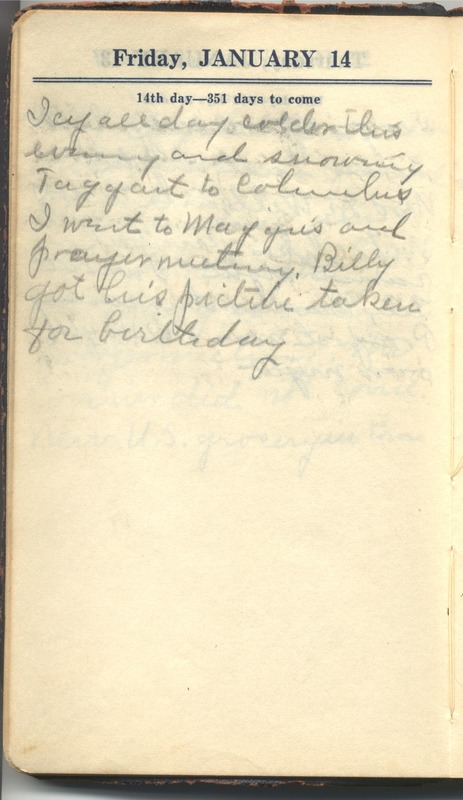 Friday, JANUARY 14
14th day—351 days to come
Icy all day, colder this
evening and snowing
Taggart to Columbus
I went to Maggie's and
prayer meeting. Billy
got his picture taken
for birthday
U.S. grocery in town